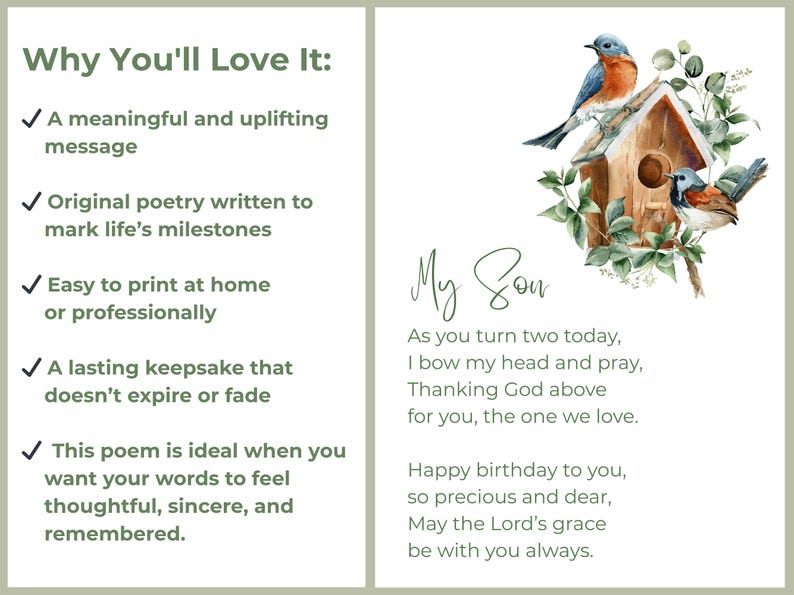 Why You'll Love It:
✓ A meaningful and uplifting
message
✓ Original poetry written to
mark life’s milestones
✓ Easy to print at home
or professionally
✓ A lasting keepsake that
doesn’t expire or fade
✓ This poem is ideal when you
want your words to feel
thoughtful, sincere, and
remembered.
My Son
As you turn two today,
I bow my head and pray,
Thanking God above
for you, the one we love.
Happy birthday to you,
so precious and dear,
May the Lord’s grace
be with you always.